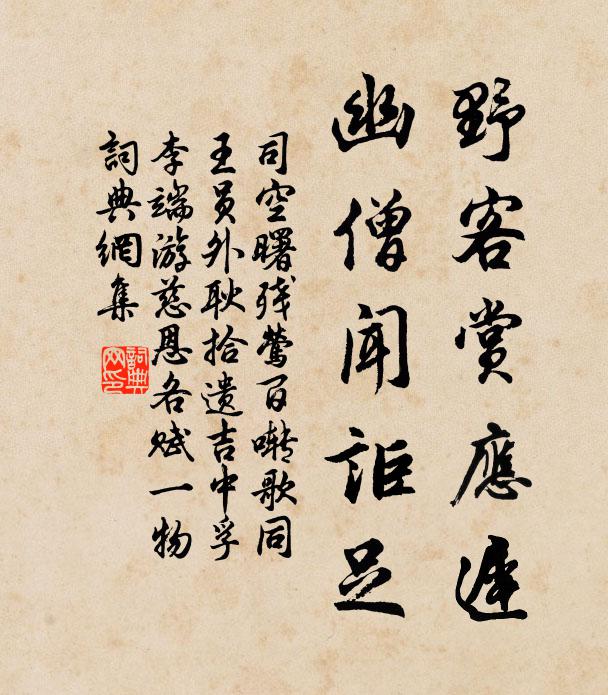 野客赏應遲
幽僧聞詎足
司空曙残鶯百囀歌同
王员外耿拾遗吉中孚
李端游慈恩各赋一物
詞典網集
詞典網印